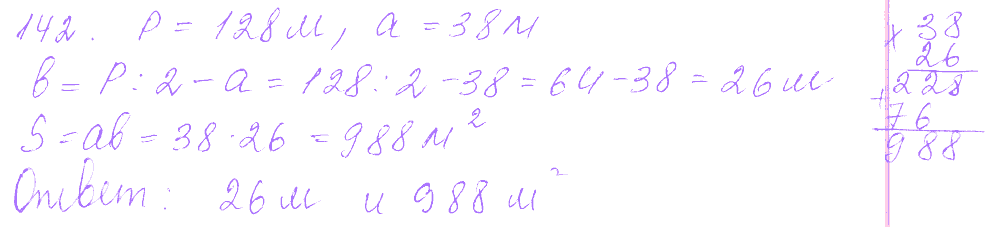 142. P = 128 м, a = 38 м
b = P : 2 - a = 128 : 2 - 38 = 64 - 38 = 26 м
S = ab = 38 · 26 = 988 м²
Ответ: 26 м и 988 м²
× 38
26
+ 228
76
988